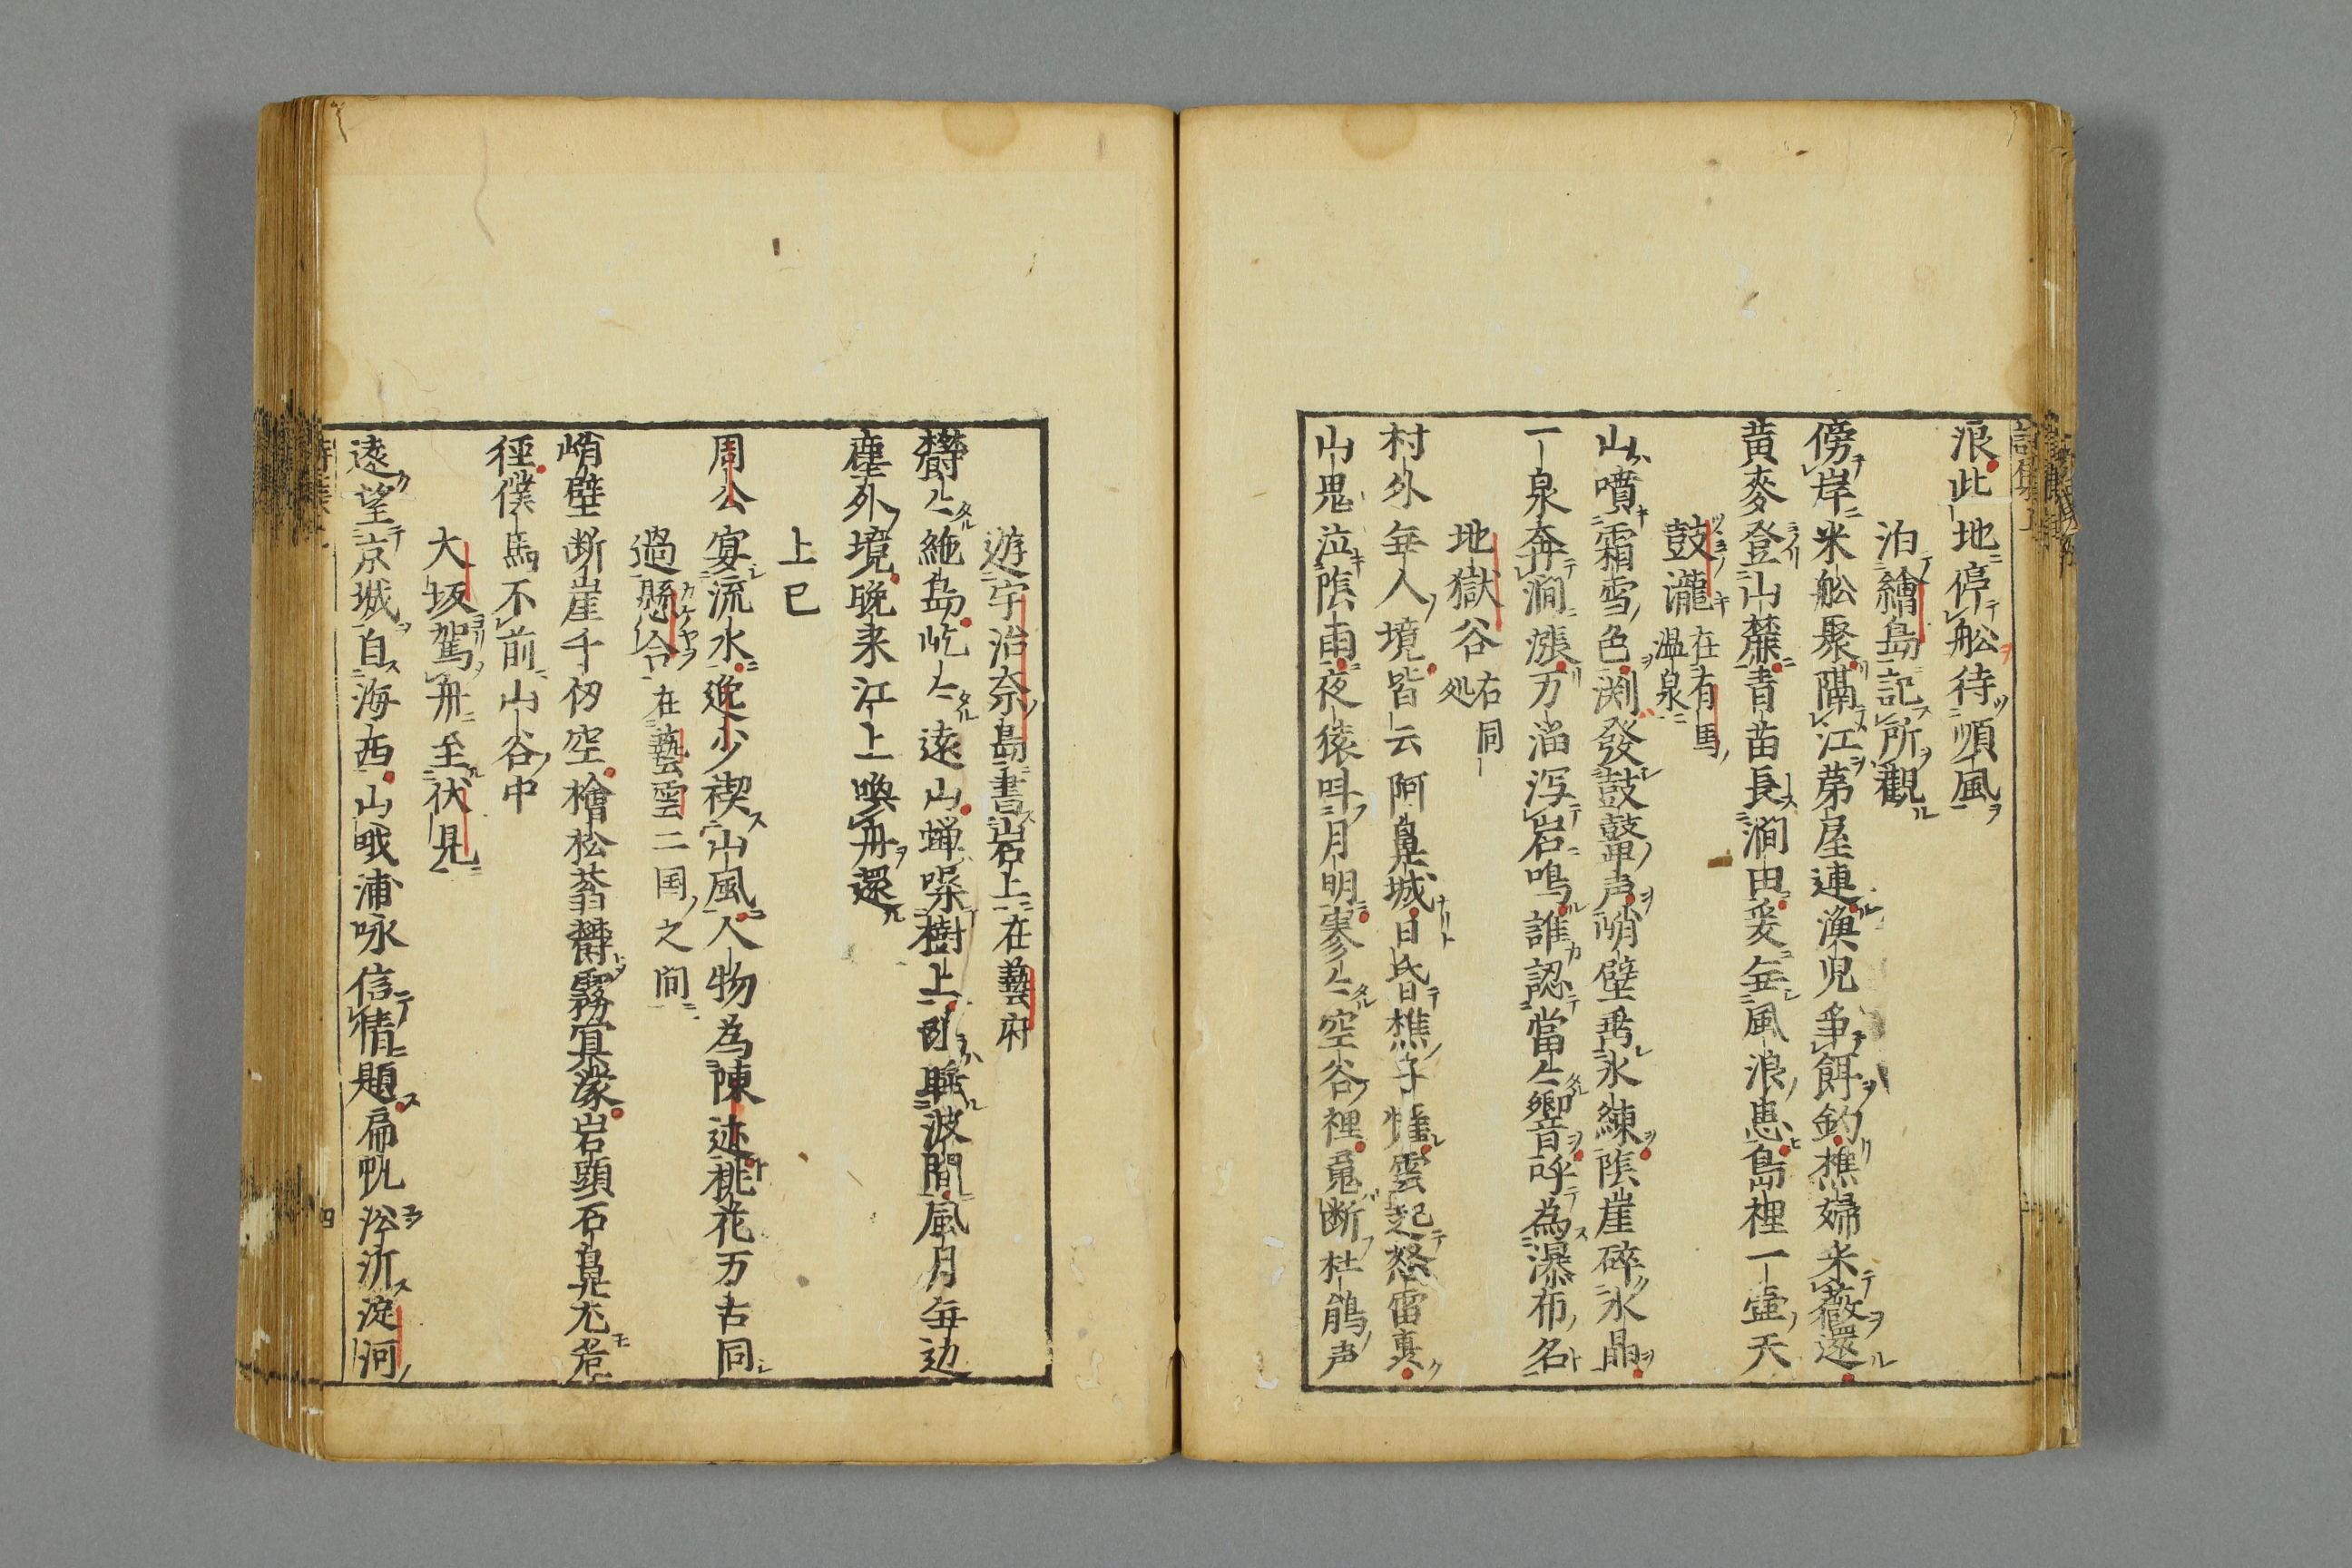 浪此地停舩待順風
泊繪島記所觀
傍岸米舩聚隔江茅屋連漁児爭餌釣樵婦来薇還
黄麥登山麓青苗長澗田爰無風浪患島裡一壷天
鼓瀧在有馬温泉
山噴霜雪色渕發鼓鼙声峭壁垂氷練陰崖碎氷晶
一泉奔澗漲万溜泻岩鳴誰認當々響音呼為瀑布名
地獄谷右同処
村外無人境皆云阿鼻城日昏樵子憧雲起怒雷轟
山鬼泣陰雨夜猿呌月明寥々空谷裡寃断杜鵑声
遊宇治奈島書岩上在藝府
欝々絶島屹々遠山蝉噪樹上鴎眠波間風月無边
塵外境晩来江上喚舟還
上巳
周公宴流水逸少禊山風人物為陳迹桃花万古同
過懸合在藝雲二国之間
峭壁断崖千仭空檜松蓊欝霧冥濛岩頭石鼻尤危
徑僕馬不前山谷中
大坂駕舟至伏見
遠望京城自海西山哦浦咏信情題扁帆㳂沂淀河
四